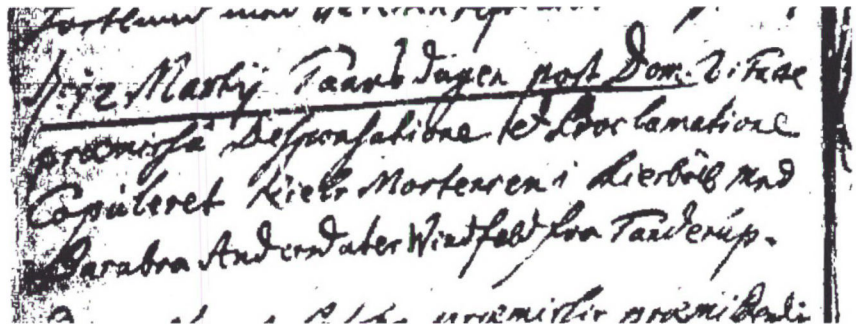 d: 12 Martij Taarsdagen post Dom: 2 i Faste
præmissâ Desponsatione et Proclamatione
Copuleret Mortensen i Kierbölg med
Barabra Andersdater Windfeld fra Tanderup.
præmissis præmittendi